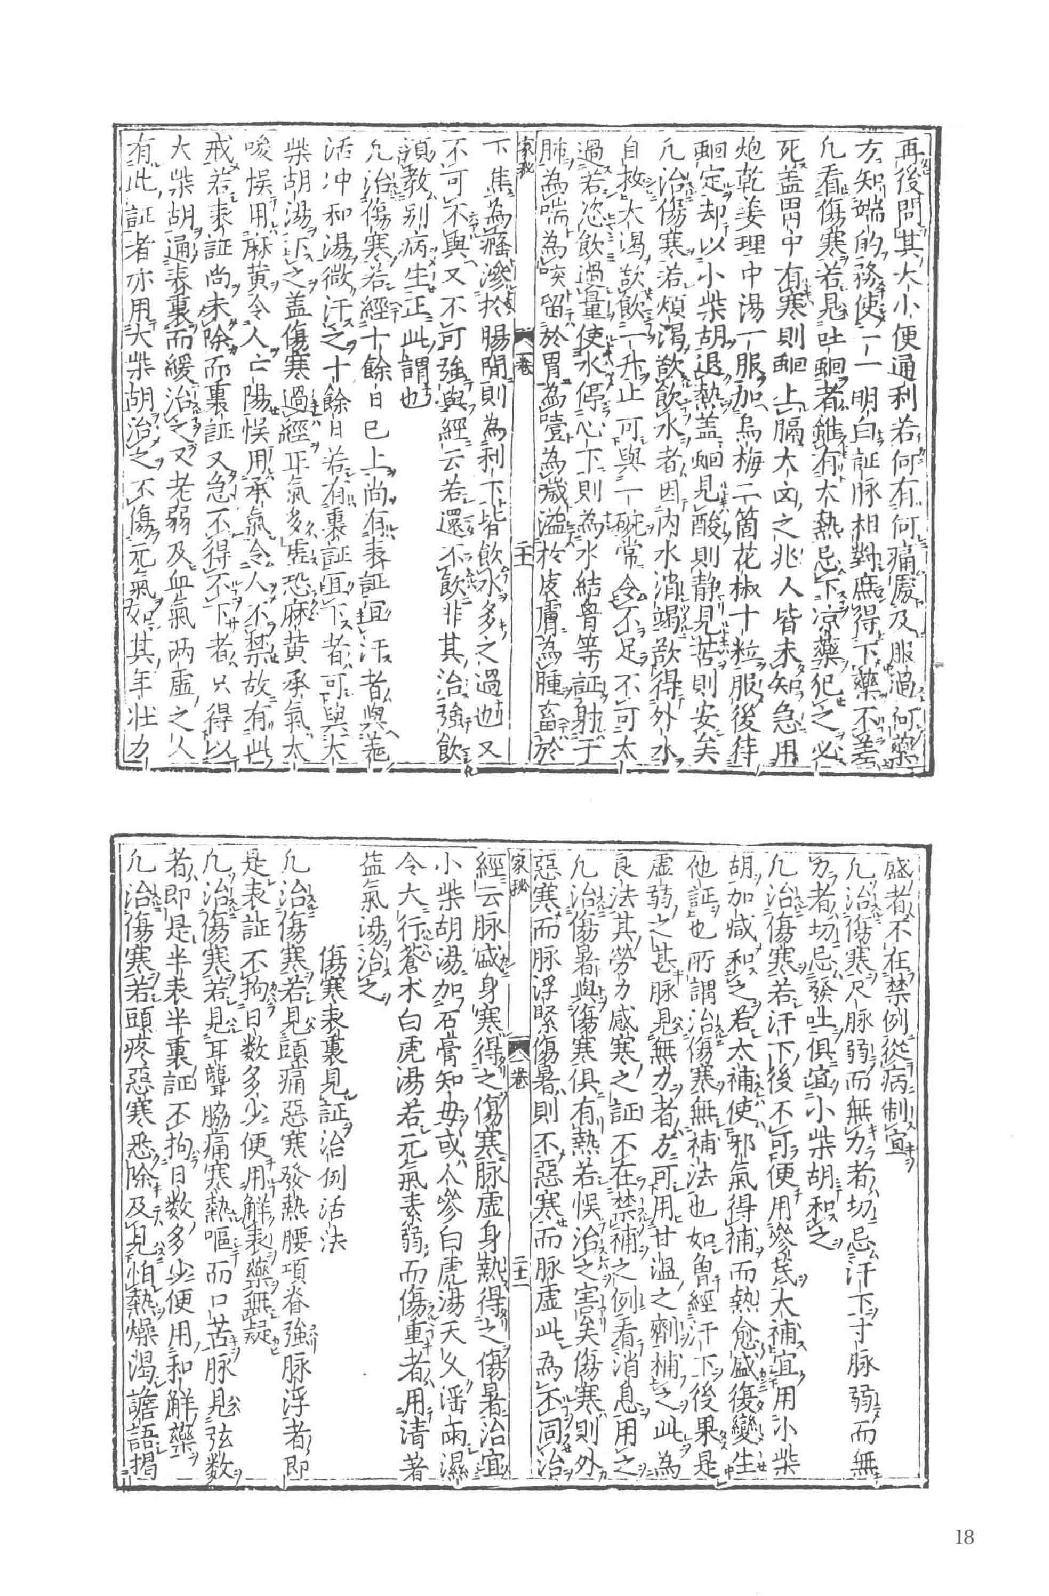 再後問其大小便通利若何有何痛處及服過何藥
方知端的務使一一明白証脉相對庶得下藥不差
凡看傷寒若見吐蛔者雖有大熱忌下凉藥犯之必
死蓋胃中有寒則蛔上膈大凶之兆人皆未知急用
炮乾姜理中湯一服加烏梅二箇花椒十粒服後待
蛔定却以小柴胡退熱蓋蛔見酸則静見苦則安矣
凡治傷寒若煩渴欲飲水者因内水消竭欲得外水
自救大渴欲飲一升止可與一碗常令不足不可太
過若恣飲過量使水停心下則為水結胷等証射于
肺為喘為咳留於胃為噎為噦溢於皮膚為腫畜於
家秘 一卷 二十一
下焦為癃滲於腸間則為利下皆飲水多之過也又
不可不與又不可強與經云若還不飲非其治強飲
須教别病生正此謂也
凡治傷寒若經十餘日已上尚有表証宜汗者與羗
活冲和湯微汗之十餘日若有裏証宜下者可與大
柴胡湯下之蓋傷寒過經正氣多虚恐麻黄承氣太
峻悞用麻黄令人亡陽悞用承氣令人不禁故有此
戒若表証尚未除而裏証又急不得不下者只得以
大柴胡通表裏而緩治之又老弱及血氣两虚之人
有此証者亦用大柴胡治之不傷元氣如其年壮力
盛者不在禁例從病制宜
凡治傷寒尺脉弱而無力者切忌汗下寸脉弱而無
力者切忌發吐俱宜小柴胡和之
凡治傷寒若汗下後不可便用參茋大補宜用小柴
胡加减和之若太補使邪氣得補而熱愈盛復變生
他証也所謂治傷寒無補法也如魯經汗下後果是
虚弱之甚脉見無力者方可用甘温之劑補之此為
良法其勞力感寒之証不在禁補之例看消息用之
凡治傷暑與傷寒俱有熱若悞治之害矣傷寒則外
惡寒而脉浮緊傷暑則不惡寒而脉虚此為不同治
家秘 一卷 二十二
經云脉盛身寒得之傷寒脉虚身熱得之傷暑治宜
小柴胡湯加石膏知母或人參白虎湯天久淫雨濕
令大行蒼术白虎湯若元氣素弱而傷重者用清暑
益氣湯治之
傷寒表裏見証治例活法
凡治傷寒若見頭痛惡寒發熱腰項脊強脉浮者即
是表証不拘日數多少便用解表藥無疑
凡治傷寒若見耳聾脇痛寒熱嘔而口苦脉見弦数
者即是半表半裏証不拘日数多少便用和解藥
凡治傷寒若頭疼惡寒悉除及見怕熱燥渴譫語揭
18